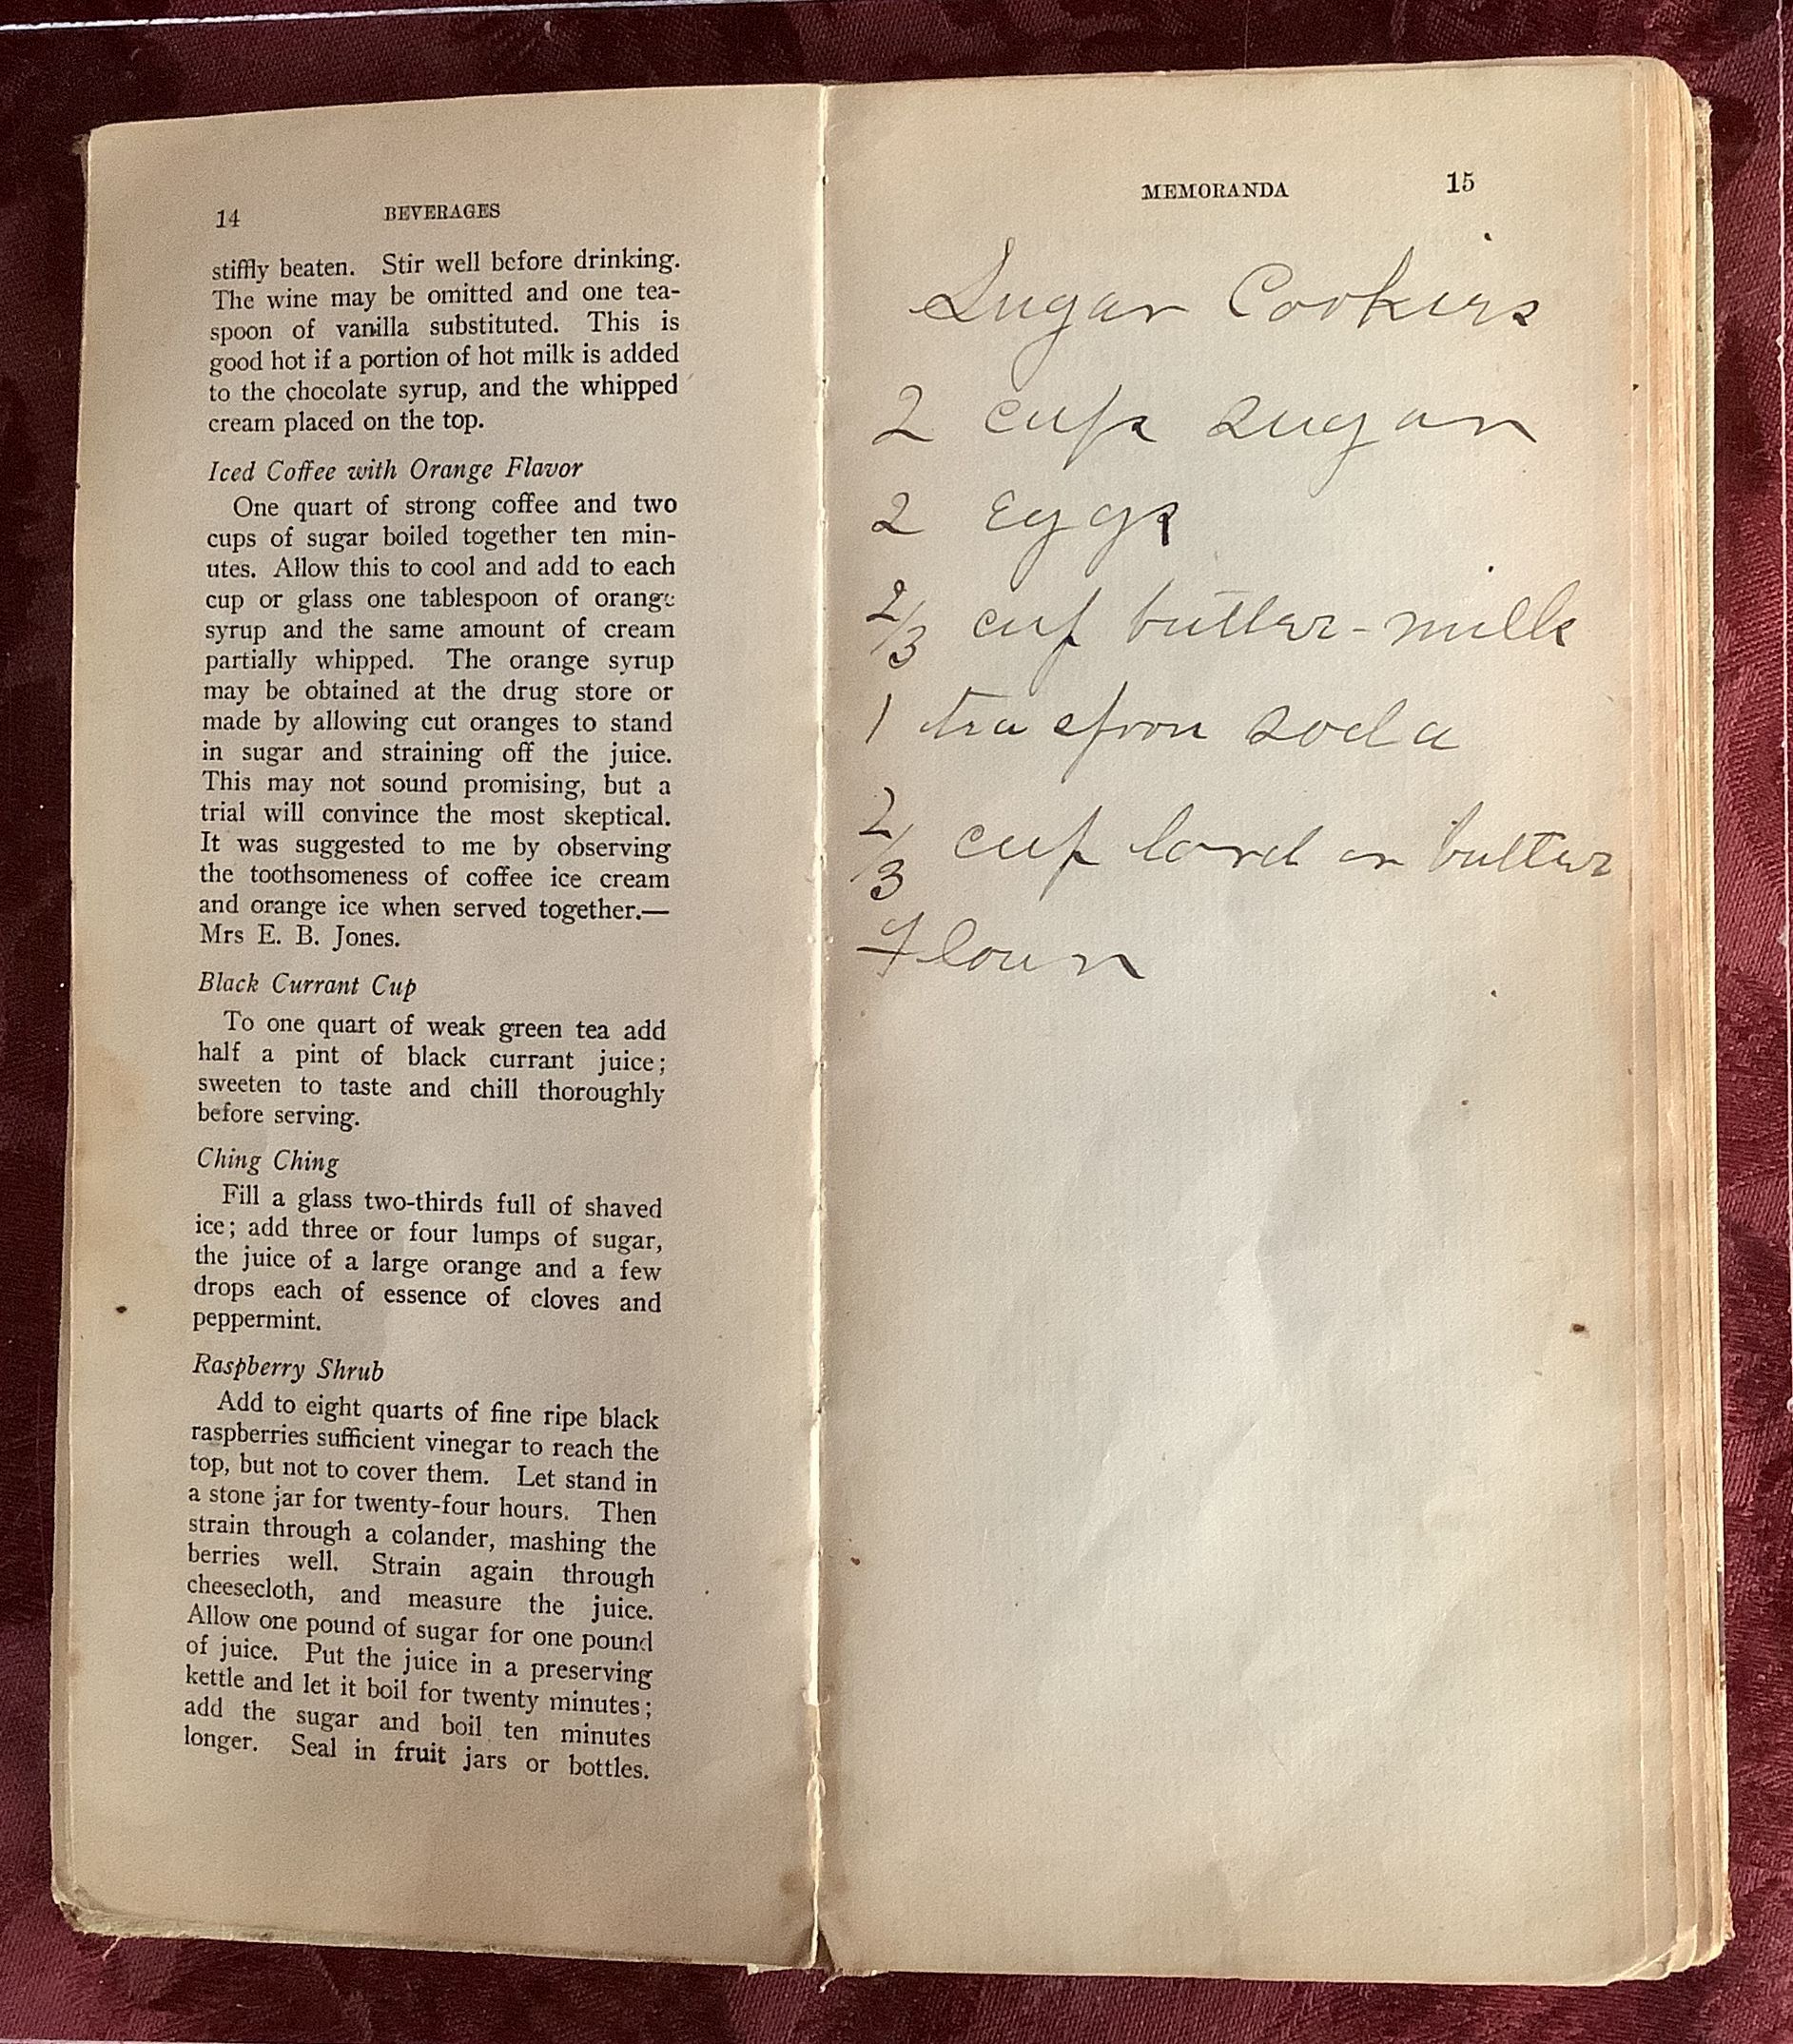 14 BEVERAGES
stiffly beaten. Stir well before drinking.
The wine may be omitted and one tea-
spoon of vanilla substituted. This is
good hot if a portion of hot milk is added
to the chocolate syrup, and the whipped
cream placed on the top.
Iced Coffee with Orange Flavor
One quart of strong coffee and two
cups of sugar boiled together ten min-
utes. Allow this to cool and add to each
cup or glass one tablespoon of orange
syrup and the same amount of cream
partially whipped. The orange syrup
may be obtained at the drug store or
made by allowing cut oranges to stand
in sugar and straining off the juice.
This may not sound promising, but a
trial will convince the most skeptical.
It was suggested to me by observing
the toothsomeness of coffee ice cream
and orange ice when served together.—
Mrs E. B. Jones.
Black Currant Cup
To one quart of weak green tea add
half a pint of black currant juice;
sweeten to taste and chill thoroughly
before serving.
Ching Ching
Fill a glass two-thirds full of shaved
ice; add three or four lumps of sugar,
the juice of a large orange and a few
drops each of essence of cloves and
peppermint.
Raspberry Shrub
Add to eight quarts of fine ripe black
raspberries sufficient vinegar to reach the
top, but not to cover them. Let stand in
a stone jar for twenty-four hours. Then
strain through a colander, mashing the
berries well. Strain again through
cheesecloth, and measure the juice.
Allow one pound of sugar for one pound
of juice. Put the juice in a preserving
kettle and let it boil for twenty minutes;
add the sugar and boil ten minutes
longer. Seal in fruit jars or bottles.
MEMORANDA 15
Sugar Cookies
2 cups sugar
2 Eggs
2/3 cup butter-milk
1 tea spoon soda
2/3 cup lard or butter
Flour